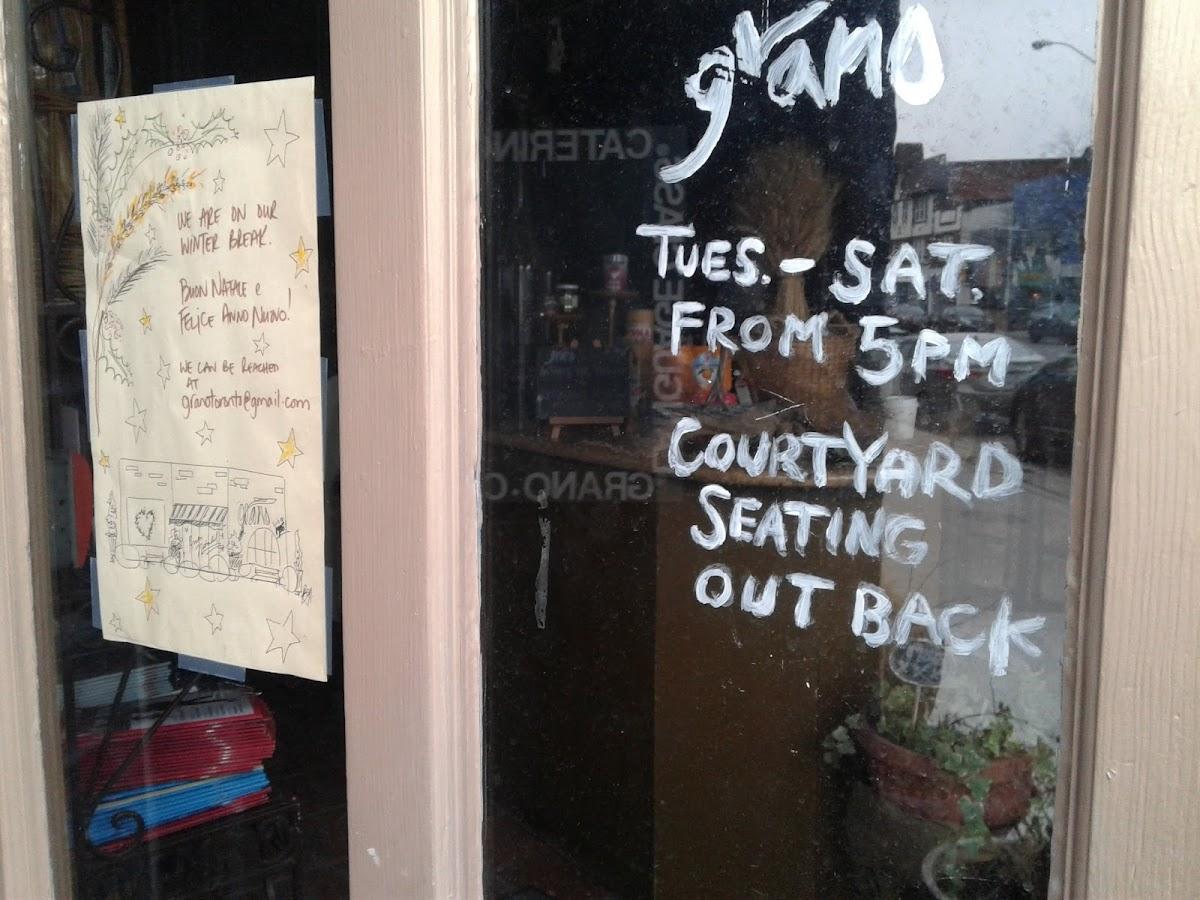 WE ARE ON OUR
WINTER BREAK.
BUON NATALE e
FELICE ANNO NUOVO!
WE CAN BE REACHED
AT
granotoronto@gmail.com
grano
grano
TUES. - SAT.
FROM 5PM
COURTYARD
SEATING
OUT BACK
CATERIN
GRANO.C